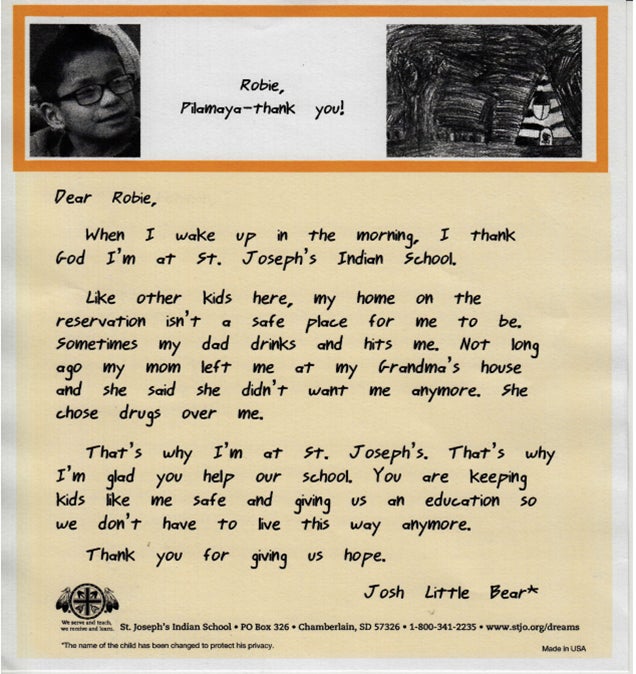 Robie,
Pilamaya-thank you!
Dear Robie,
When I wake up in the morning, I thank
God I'm at St. Joseph's Indian School.
Like other kids here, my home on the
reservation isn't a safe place for me to be.
Sometimes my dad drinks and hits me. Not long
ago my mom left me at my Grandma's house
and she said she didn't want me anymore. She
chose drugs over me.
That's why I'm at St. Joseph's. That's why
I'm glad you help our school. You are keeping
kids like me safe and giving us an education so
we don't have to live this way anymore.
Thank you for giving us hope.
Josh Little Bear*
We serve and teach,
we receive and learn.
St. Joseph's Indian School • PO Box 326 • Chamberlain, SD 57326 • 1-800-341-2235 • www.stjo.org/dreams
*The name of the child has been changed to protect his privacy.
Made in USA